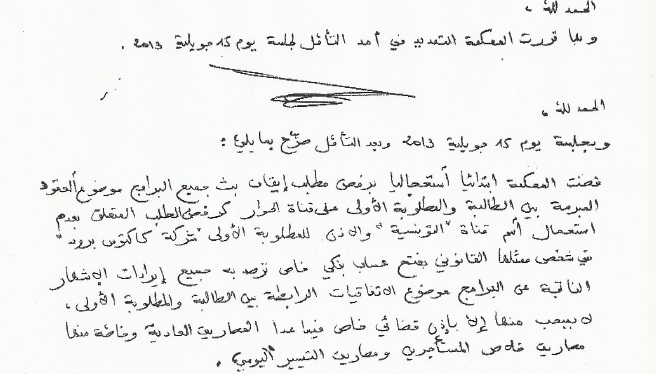 الحمد لله
وبها قررت المحكمة التمديد في أمد التأمل لجلسة يوم 15 جويلية 2013 .
الحمد لله
وبجلسة يوم 15 جويلية 2013 وبعد التأمل صرّح بما يلي :
قضت المحكمة ابتدائيا استعجاليا برفض مطلب إيقاف بث جميع البرامج موضوع العقود
المبرمة بين الطالبة والمطلوبة الأولى على قناة الحوار كرفض الطلب المتعلق بعدم
استعمال أسم قناة "التونسية" والاذن للمطلوبة الأولى "شركة كاكتوس برود"
في شخص ممثلها القانوني بفتح حساب بنكي خاص ترصد به جميع إيرادات الإشهار
الناتجة عن البرامج موضوع الاتفاقيات الرابطة بين الطالبة والمطلوبة الأولى ،
لا يسحب منها إلا بإذن قضائي خاص فيما عدا المصاريف العادية وخاصة منها
مصاريف خلاص المستأجرين ومصاريف التسيير اليومي .